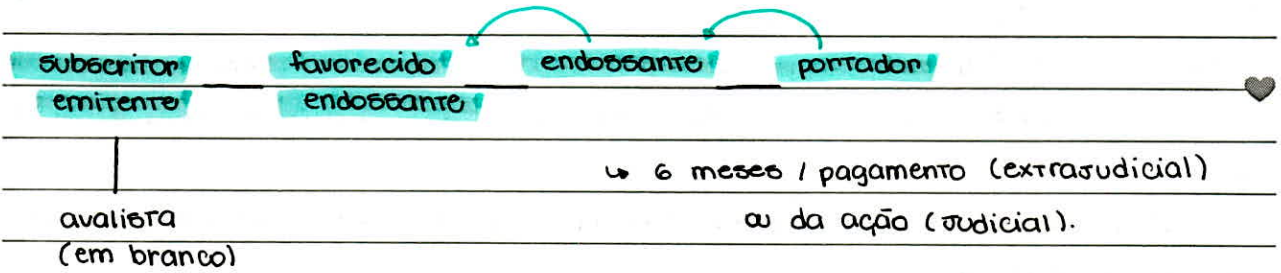 subscritor favorecido endossante portador
emitente endossante
↳ 6 meses / pagamento (extrajudicial)
avalista ou da ação (judicial).
(em branco)